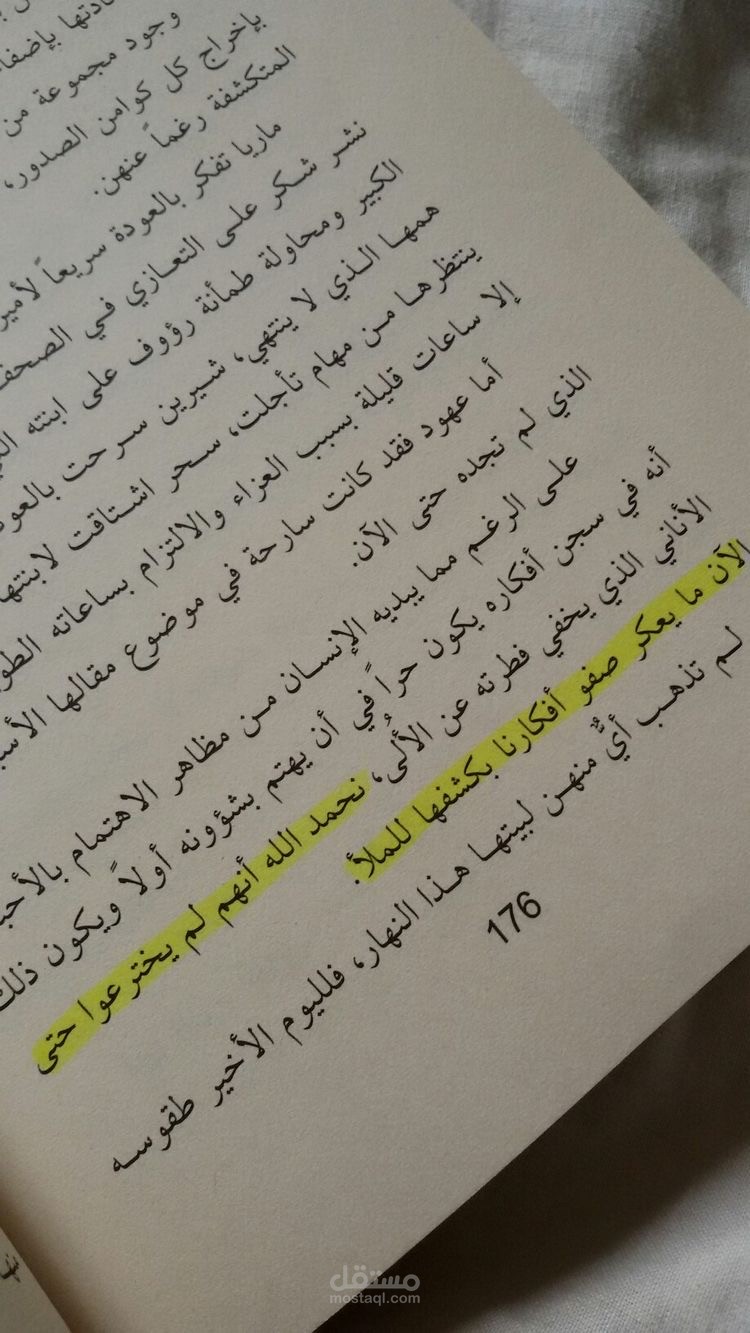 وجود مجموعة من
بإخراج كل كوامن الصدور،
المتكشفة رغماً عنهن.
ماريا تفكر بالعودة سريعاً
نشر شكر على التعازي في الصحف
الكبير ومحاولة طمأنة رؤوف على ابنته
همها الذي لا ينتهي، شيرين سرحت
ينتظرها من مهام تأجلت، سحر اشتاقت لابنتها
إلا ساعات قليلة بسبب العزاء والالتزام بساعاته
أما عهود فقد كانت سارحة في موضوع مقالها
الذي لم تجده حتى الآن.
على الرغم مما يبديه الإنسان من مظاهر الاهتمام
أنه في سجن أفكاره يكون حراً في أن يهتم بشؤونه أولاً ويكون ذلك
الأناني الذي يخفي فطرته عن الأُلى، نحمد الله أنهم لم يخترعوا حتى
الآن ما يعكر صفو أفكارنا بكشفها للملأ.
لم تذهب أيٌّ منهن لبيتها هذا النهار، فلليوم الأخير طقوسه
176
مستقل
mostaql.com